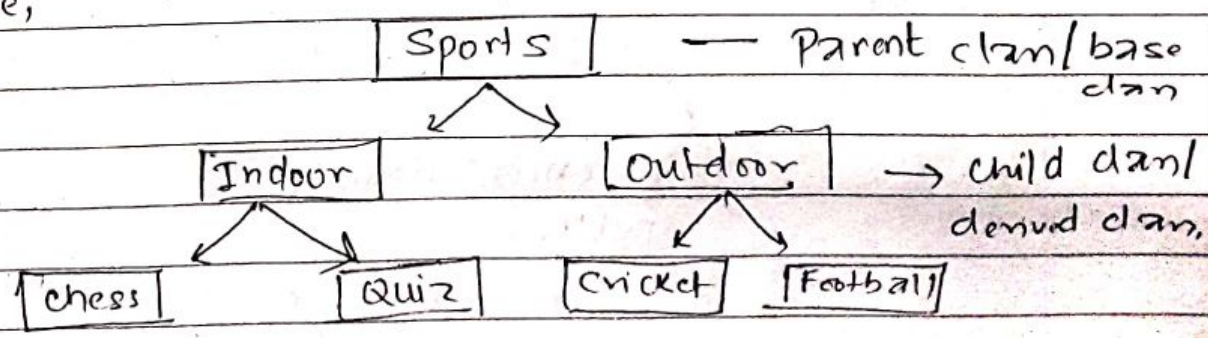 e,
Sports — Parent class/base
class
Indoor Outdoor → child class/
derived class.
chess Quiz Cricket Football